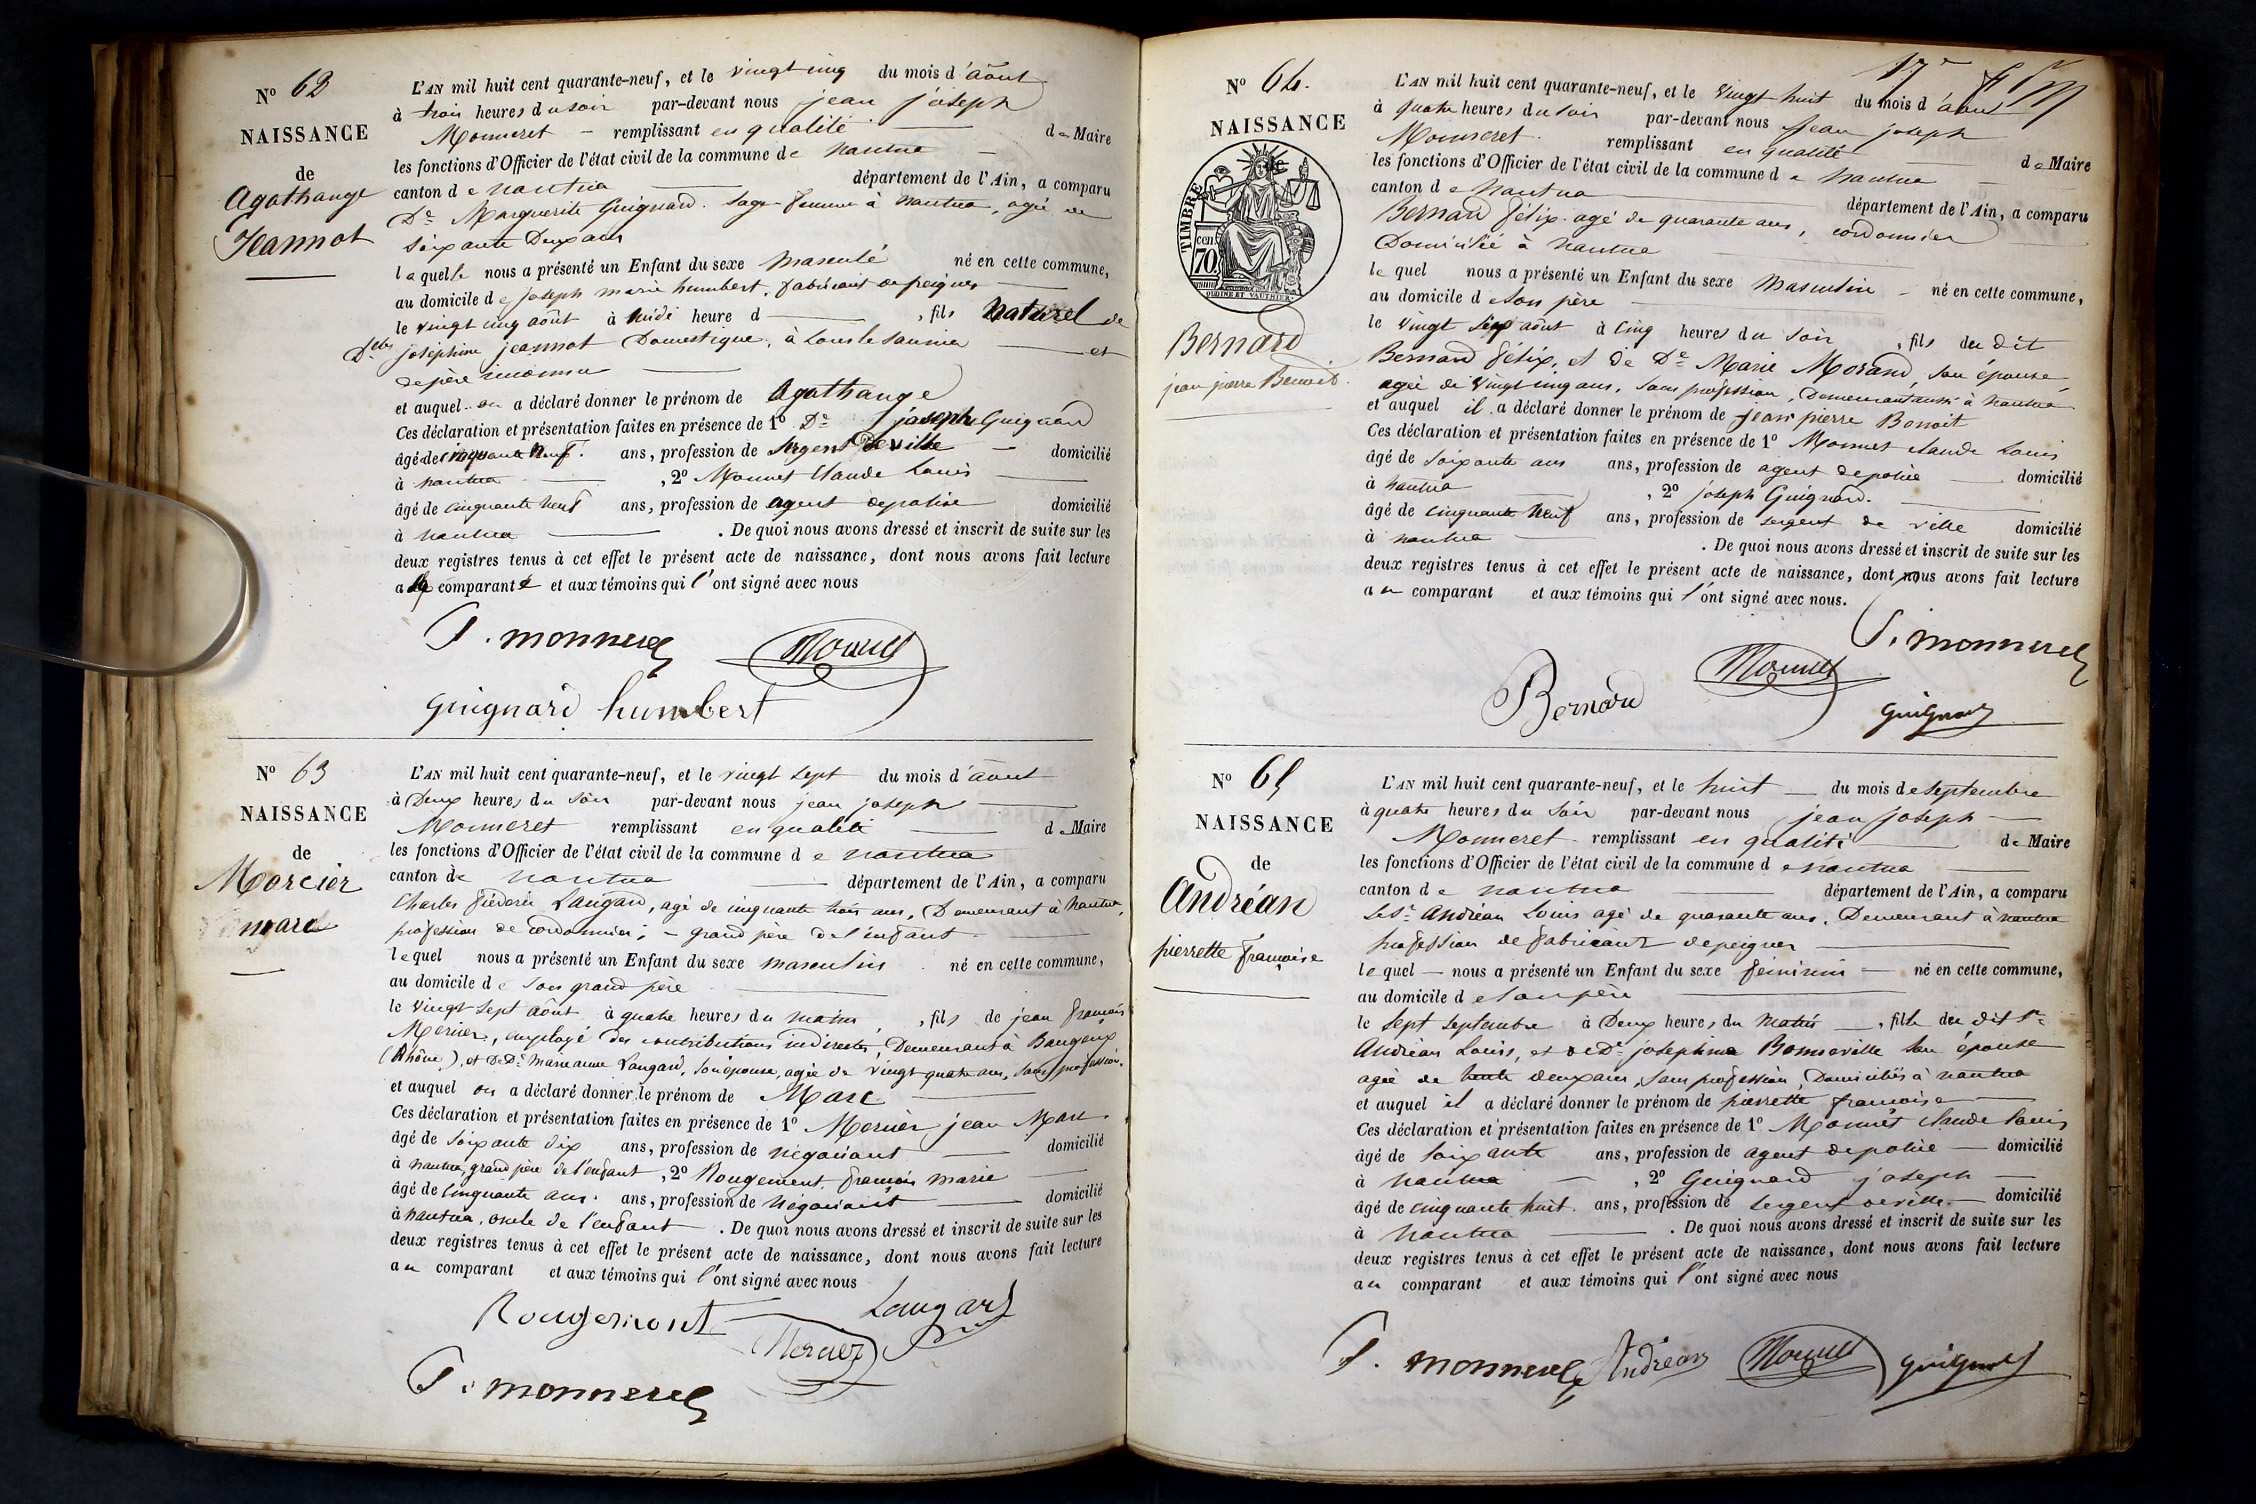 N° 62
NAISSANCE
de
Agathange
Jeannot
L'AN mil huit cent quarante-neuf, et le vingt cinq du mois d'août
à trois heures du soir par-devant nous jean joseph
Monneret - remplissant en qualité de Maire
les fonctions d'Officier de l'état civil de la commune de nantua
canton de nantua département de l'Ain, a comparu
De Marguerite Guignard. sage femme à nantua, agée de
soixante Deux ans
laquelle nous a présenté un Enfant du sexe masculé né en cette commune,
au domicile de joseph marie humbert, fabricant de peignes
le vingt cinq août à midi heure d , fils naturel de
Delle joséphine jeannot Domestique, à Lons le saunier et
de père inconnu
et auquel on a déclaré donner le prénom de Agathange
Ces déclaration et présentation faites en présence de 1° De joseph Guignard
âgé de cinquante neuf. ans, profession de sergent de ville - domicilié
à nantua , 2° Monnet Claude Louis
âgé de cinquante neuf ans, profession de agent de police domicilié
à nantua . De quoi nous avons dressé et inscrit de suite sur les
deux registres tenus à cet effet le présent acte de naissance, dont nous avons fait lecture
a la comparante et aux témoins qui l'ont signé avec nous
J. monneret Monnet
guignard humbert
N° 63
NAISSANCE
de
Mercier
marc
L'AN mil huit cent quarante-neuf, et le vingt sept du mois d'août
à Deux heures du soir par-devant nous jean joseph
Monneret remplissant en qualité de Maire
les fonctions d'Officier de l'état civil de la commune de nantua
canton de nantua département de l'Ain, a comparu
Charles fréderic Laugard, agé de cinquante trois ans, Demeurant à nantua,
profession de cordonnier; - grand père de l'enfant
lequel nous a présenté un Enfant du sexe masculin né en cette commune,
au domicile de son grand père
le vingt sept août à quatre heures du matin , fils de jean françois
Mercier, employé des contributions indirectes, Demeurant à Baugeux
(Rhône), et De De Marie anne Laugard, son épouse, agée de vingt quatre ans, sans profession.
et auquel on a déclaré donner le prénom de Marc
Ces déclaration et présentation faites en présence de 1° Mercier jean Marc.
âgé de soixante dix ans, profession de négociant domicilié
à nantua, grand père de l'enfant , 2° Rougemont françois marie
âgé de cinquante ans. ans, profession de négociant domicilié
à nantua, oncle de l'enfant . De quoi nous avons dressé et inscrit de suite sur les
deux registres tenus à cet effet le présent acte de naissance, dont nous avons fait lecture
au comparant et aux témoins qui l'ont signé avec nous
Rougemont Laugard
Mercier
J. monneret
17e
N° 64.
NAISSANCE
de
TIMBRE
cen.
70
OUDINÉ ET VAUTHIER.
Bernard
jean pierre Benoit.
L'AN mil huit cent quarante-neuf, et le vingt huit du mois d'août
à quatre heures du soir par-devant nous Jean joseph
Monneret. remplissant en qualité de Maire
les fonctions d'Officier de l'état civil de la commune de nantua
canton de nantua département de l'Ain, a comparu
Bernard félix. agé de quarante ans, cordonnier
Domicilié à nantua
lequel nous a présenté un Enfant du sexe Masculin né en cette commune,
au domicile de son père
le vingt sept août à cinq heures du soir , fils du dit
Bernard félix, et de De Marie Morand, son épouse,
agée de vingt cinq ans, sans profession, Demeurant aussi à nantua
et auquel il a déclaré donner le prénom de jean pierre Benoit
Ces déclaration et présentation faites en présence de 1° Monnet claude Louis
âgé de soixante ans ans, profession de agent de police domicilié
à nantua , 2° joseph Guignard.
âgé de cinquante neuf ans, profession de sergent de ville domicilié
à nantua . De quoi nous avons dressé et inscrit de suite sur les
deux registres tenus à cet effet le présent acte de naissance, dont nous avons fait lecture
au comparant et aux témoins qui l'ont signé avec nous.
J. monneret
Bernard Monnet guignard
N° 65
NAISSANCE
de
Andréan
pierrette françoise
L'AN mil huit cent quarante-neuf, et le huit du mois de septembre
à quatre heures du soir par-devant nous jean joseph
Monneret remplissant en qualité de Maire
les fonctions d'Officier de l'état civil de la commune de nantua
canton de nantua département de l'Ain, a comparu
le Sr Andréan Louis agé de quarante ans, Demeurant à nantua
profession de fabricant de peignes
lequel nous a présenté un Enfant du sexe féminin né en cette commune,
au domicile de son père
le sept septembre à Deux heures du matin , fille du dit Sr
Andréan Louis, et de De joséphine Bonneville son épouse
agée de trente deux ans, sans profession, Domiciliés à nantua
et auquel il a déclaré donner le prénom de pierrette françoise
Ces déclaration et présentation faites en présence de 1° Monnet claude Louis
âgé de soixante ans, profession de agent de police domicilié
à nantua , 2° Guignard joseph
âgé de cinquante huit. ans, profession de sergent de ville. domicilié
à nantua . De quoi nous avons dressé et inscrit de suite sur les
deux registres tenus à cet effet le présent acte de naissance, dont nous avons fait lecture
au comparant et aux témoins qui l'ont signé avec nous
J. monneret Andréan Monnet guignard